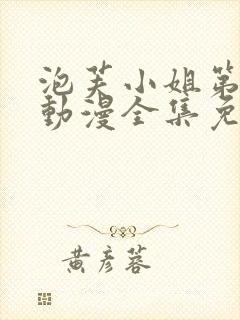 泡芙小姐第
動漫全集免
黃彥蓉